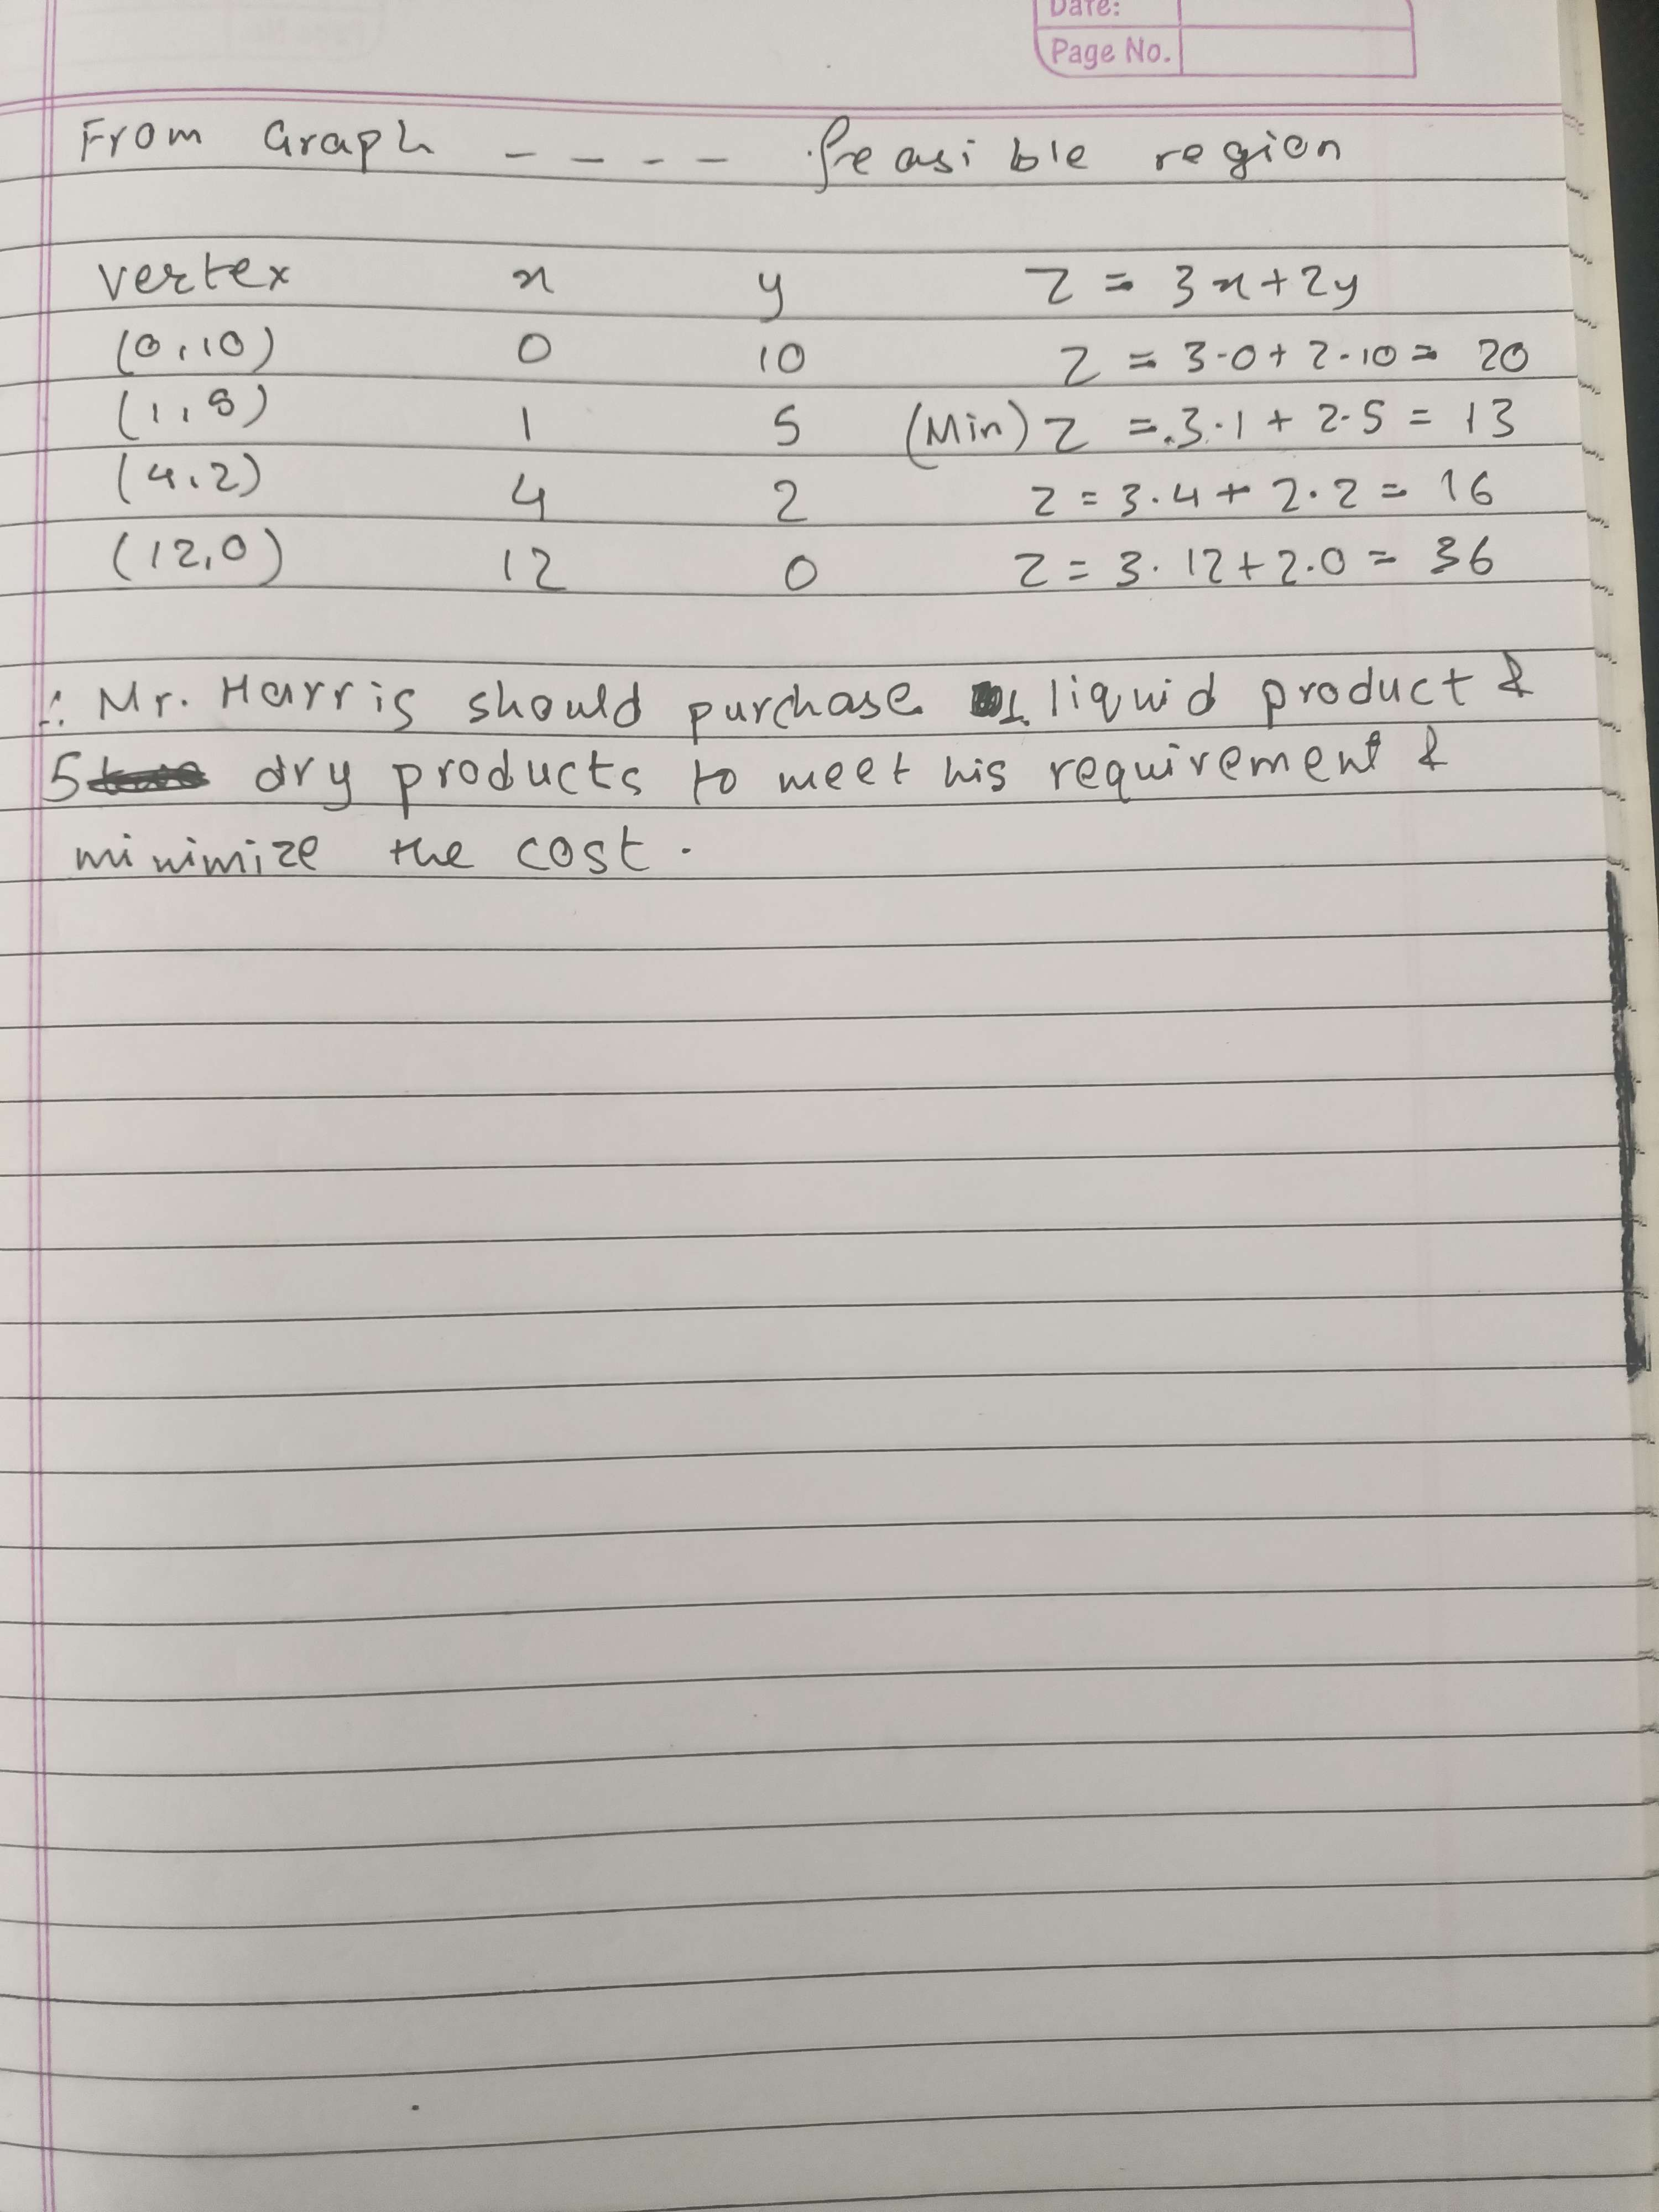 Date:
Page No.
From Graph ---- feasible region
vertex x y Z = 3x+2y
(0,10) 0 10 Z = 3·0+2·10 = 20
(1,5) 1 5 (Min) Z = 3·1 + 2·5 = 13
(4,2) 4 2 Z = 3·4 + 2·2 = 16
(12,0) 12 0 Z = 3·12+2·0 = 36
∴ Mr. Harris should purchase 1 liquid product &
5 dry products to meet his requirement &
minimize the cost.